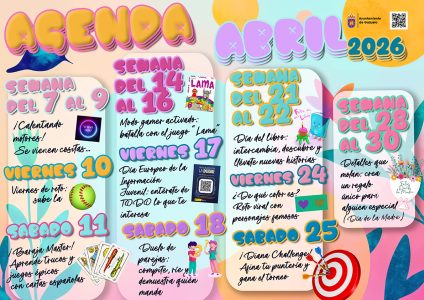 AGENDA
ABRIL 2026
Ayuntamiento
SEMANA
DEL 7 AL 9
¡Calentando
motores!
Se vienen cositas...
VIERNES 10
Viernes de reto:
sube la
SABADO 11
¡Baraja Master!
Aprende trucos y
juegos épicos
con cartas españolas
SEMANA
DEL 14
AL 16
Modo gamer activado:
batalla con el juego "Lama"
LAMA
VIERNES 17
Día Europeo de la
Información
Juvenil: entérate de
TODO lo que te
interesa
SABADO 18
Duelo de
parejas:
compite, ríe y
demuestra quién
manda
SEMANA
DEL 21
AL 22
Día del libro:
intercambia, descubre y
llévate nuevas historias
VIERNES 24
¿De qué color es?
Reto viral con
personajes famosos
SABADO 25
¡Diana Challenge!
Afina tu puntería y
gana el torneo
SEMANA
DEL 28
AL 30
Detalles que
molan: crea
un regalo
único para
alguien especial
(Día de la Madre)